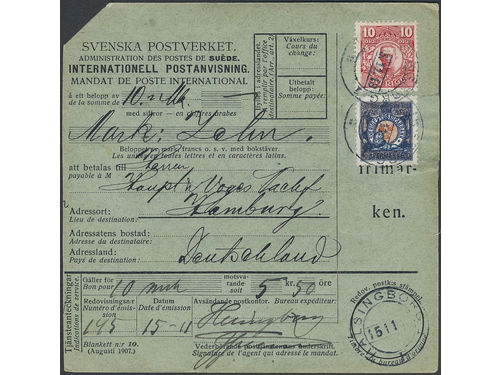 SVENSKA POSTVERKET.
ADMINISTRATION DES POSTES DE SUÈDE.
INTERNATIONELL POSTANVISNING.
MANDAT DE POSTE INTERNATIONAL
å ett belopp av
de la somme de 10.
med siffror — en chiffres arabes
Mark: Zehn.
Beloppet av mark, francs o. s. v. med bokstäver.
Les unités en toutes lettres et en caractères latins.
att betalas till Herren
payable à M
Haupt & Voges Nachf
Adressort: Hamburg.
Lieu de destination:
Adressatens bostad:
Adresse du destinataire:
Adressland: Deutschland
Pays de destination:
Växelkurs:
Cours du change:
Utbetalt belopp:
Somme payée:
10 10
SVERIGE
frimär-
ken.
Tjänsteanteckningar
Indications de service.
Gäller för
Bon pour 10 mrk
motsvarande
soit 5 kr. 50 öre
Redovisningsnr
Numéro d'émission 195
Datum
Date d'émission 15-11
Avsändande postkontor. Bureau expéditeur:
Helsingborg
Blankett n:r 10.
(Augusti 1907.)
Vederbörande postmannens underskrift.
Signature de l'agent qui a dressé le mandat.
Redov. postk:s stämpel.
HÄLSINGBORG
15 11